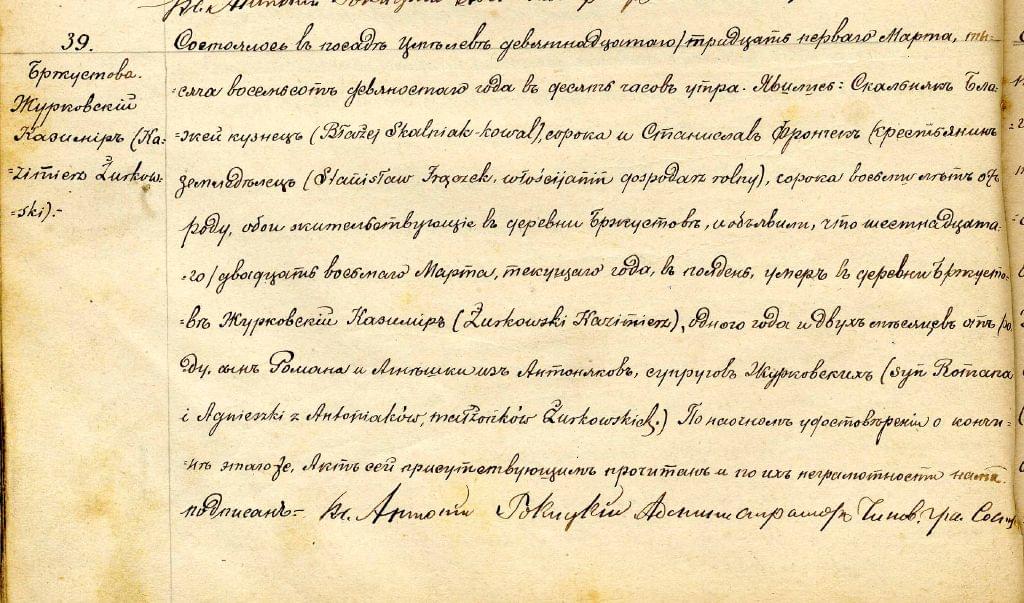 39.
Бржустова.
Журковскій
Казиміръ (Ka-
zimierz Żurkow-
=ski).-
Состоялось въ посадѣ Цмѣлевѣ девятнадцатаго/тридцать перваго Марта, ты-
=сяча восемьсотъ девяностаго года въ десять часовъ утра. Явились: Скальнякъ Бла-
=жей кузнецъ (Błażej Skalniak-kowal), сорока и Станиславъ Фрончекъ (крестьянинъ
земледѣлецъ (Stanisław Frączek, włościjanin gospodarz rolny), сорока восьми лѣтъ отъ
роду, обои жительствующіе въ деревни Бржустовѣ, и объявили, что шестнадцата-
=го/двадцать восьмаго Марта, текущаго года, въ полдень, умеръ въ деревни Бржусто-
=вѣ Журковскій Казиміръ (Żurkowski Kazimierz), одного года и двухъ мѣсяцевъ отъ ро-
ду, сынъ Романа и Агнѣшки изъ Антоняковъ, супруговъ Журковскихъ (syn Romana
i Agnieszki z Antoniaków, małżonków Żurkowskich.) По наочномъ удостовѣреніи о кончи-
=нѣ этого же, Актъ сей присутствующимъ прочитанъ и по ихъ неграмотности нами
подписанъ.- Кс. Антоній Рокицкій Администраторъ Чинов. гра. Сост